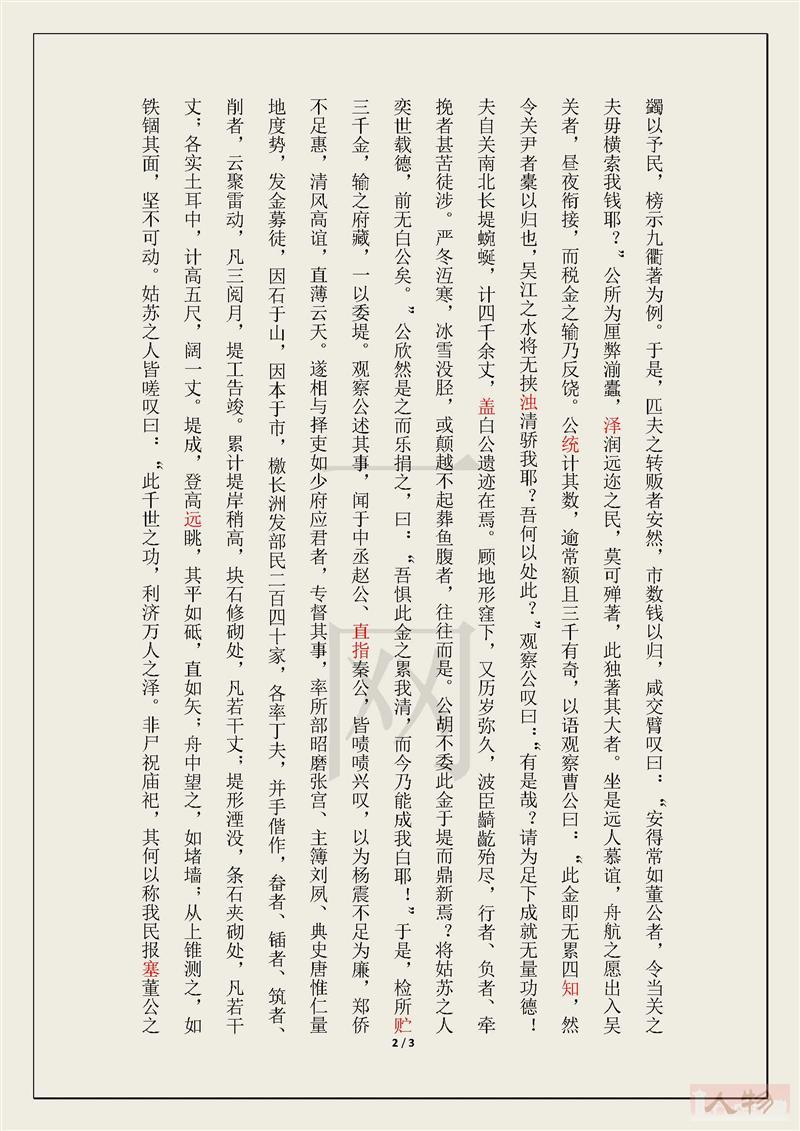 蠲以予民，榜示九衢著为例。于是，匹夫之转贩者安然，市数钱以归，咸交臂叹曰：“安得常如董公者，令当关之
夫毋横索我钱耶？”公所为厘弊湔蠹，泽润远迩之民，莫可殚著，此独著其大者。坐是远人慕谊，舟航之愿出入吴
关者，昼夜衔接，而税金之输乃反饶。公统计其数，逾常额且三千有奇，以语观察曹公曰：“此金即无累四知，然
令关尹者橐以归也，吴江之水将无挟浊清骄我耶？吾何以处此？”观察公叹曰：“有是哉？请为足下成就无量功德！
夫自关南北长堤蜿蜒，计四千余丈，盖白公遗迹在焉。顾地形窪下，又历岁弥久，波臣齮龁殆尽，行者、负者、牵
挽者甚苦徒涉。严冬沍寒，冰雪没胫，或颠越不起葬鱼腹者，往往而是。公胡不委此金于堤而鼎新焉？将姑苏之人
奕世载德，前无白公矣。”公欣然是之而乐捐之，曰：“吾惧此金之累我清，而今乃能成我白耶！”于是，检所贮
三千金，输之府藏，一以委堤。观察公述其事，闻于中丞赵公、直指秦公，皆啧啧兴叹，以为杨震不足为廉，郑侨
不足惠，清风高谊，直薄云天。遂相与择吏如少府应君者，专督其事，率所部昭磨张宫、主簿刘夙、典史唐惟仁量
地度势，发金募徒，因石于山，因本于市，檄长洲发部民二百四十家，各率丁夫，并手偕作，畚者、锸者、筑者、
削者，云聚雷动，凡三阅月，堤工告竣。累计堤岸稍高，块石修砌处，凡若干丈；堤形湮没，条石夹砌处，凡若干
丈；各实土耳中，计高五尺，阔一丈。堤成，登高远眺，其平如砥，直如矢；舟中望之，如堵墙；从上锥测之，如
铁锢其面，坚不可动。姑苏之人皆嗟叹曰：“此千世之功，利济万人之泽。非尸祝庙祀，其何以称我民报塞董公之
2 / 3
一网
人物